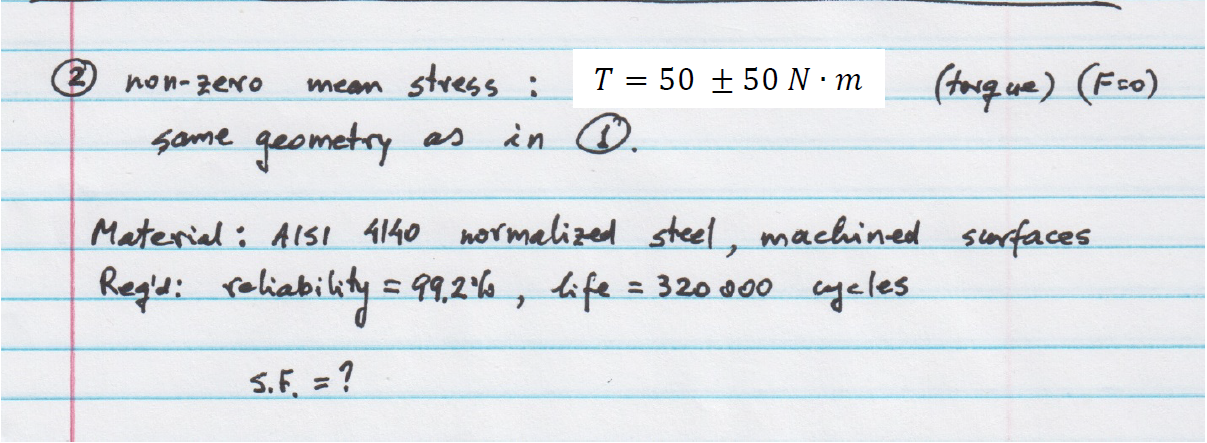 ② non-zero mean stress : T = 50 ± 50 N · m (torque) (F=0)
same geometry as in ①.
Material: AISI 4140 normalized steel, machined surfaces
Req'd: reliability = 99.2%, life = 320 000 cycles
S.F. = ?